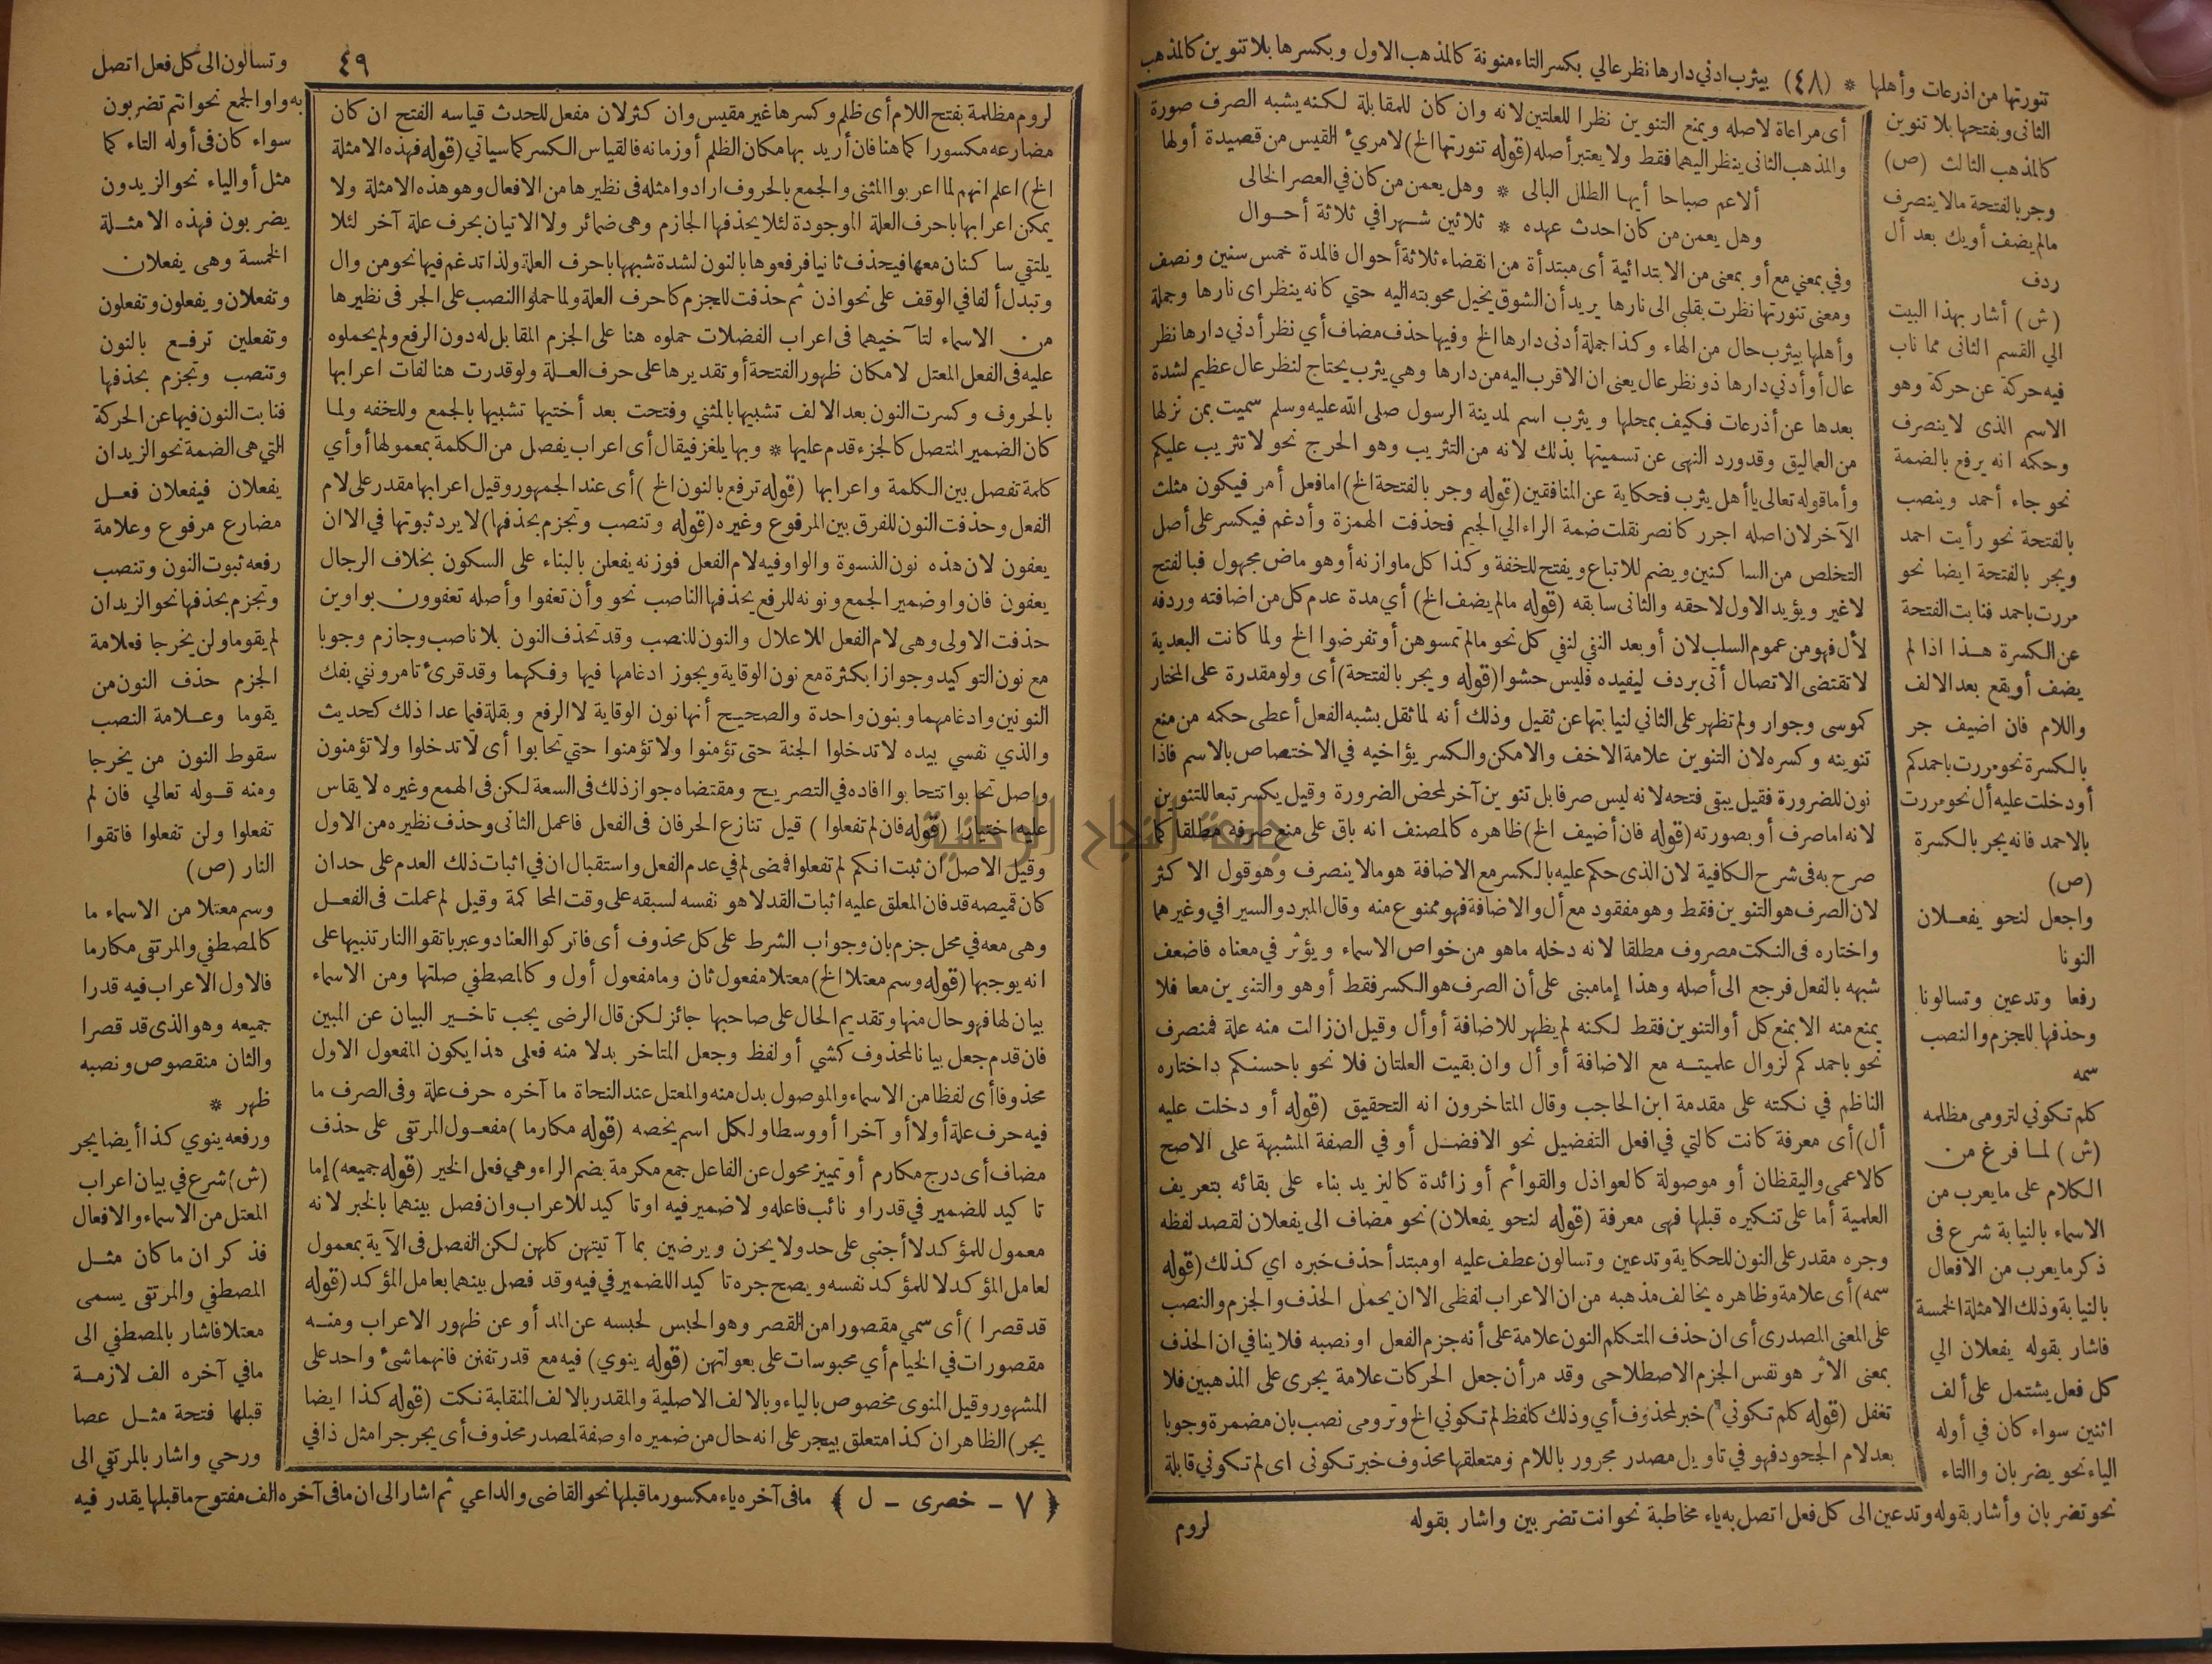 تنورتها من اذرعات وأهلها * (٤٨) بيثرب ادني دارها نظر عالي بكسر التاء منونة كالمذهب الاول وبكسرها بلا تنوين كالمذهب
الثانى وبفتحها بلا تنوين
كالمذهب الثالث (ص)
وجر بالفتحة مالا ينصرف
مالم يضف أو يك بعد أل
ردف
(ش) أشار بهذا البيت
الي القسم الثانى مما ناب
فيه حركة عن حركة وهو
الاسم الذى لا ينصرف
وحكمه انه يرفع بالضمة
نحو جاء أحمد وينصب
بالفتحة نحو رأيت احمد
ويجر بالفتحة ايضا نحو
مررت باحمد فنابت الفتحة
عن الكسرة هذا اذا لم
يضف أو يقع بعد الالف
واللام فان اضيف جر
بالكسرة نحو مررت باحمدكم
أو دخلت عليه أل نحو مررت
بالاحمد فانه يجر بالكسرة
(ص)
واجعل لنحو يفعلان
النونا
رفعا وتدعين وتسالونا
وحذفها للجزم والنصب
سمه
كلم تكوني لترومى مظلمه
(ش) لما فرغ من
الكلام على ما يعرب من
الاسماء بالنيابة شرع فى
ذكر ما يعرب من الافعال
بالنيابة وذلك الامثلة الخمسة
فاشار بقوله يفعلان الي
كل فعل يشتمل على ألف
اثنين سواء كان في أوله
الياء نحو يضربان واالتاء
نحو تضربان وأشار بقوله وتدعين الى كل فعل اتصل به ياء مخاطبة نحو انت تضربين واشار بقوله
أى مراعاة لاصله ويمنع التنوين نظرا للعلتين لانه وان كان للمقابلة لكنه يشبه الصرف صورة
والمذهب الثانى ينظر اليهما فقط ولا يعتبر أصله (قوله تنورتها الخ) لامرئ القيس من قصيدة أولها
ألا عم صباحا أيها الطلل البالى * وهل يعمن من كان في العصر الخالى
وهل يعمن من كان احدث عهده * ثلاثين شهرا في ثلاثة أحوال
وفي بمعني مع أو بمعنى من الابتدائية أى مبتدأة من انقضاء ثلاثة أحوال فالمدة خمس سنين ونصف
ومعنى تنورتها نظرت بقلبى الى نارها يريد أن الشوق يخيل محبوبته اليه حتي كانه ينظر اى نارها وجملة
وأهلها بيثرب حال من الهاء وكذا جملة أدنى دارها الخ وفيها حذف مضاف أي نظر أدني دارها نظر
عال أو أدني دارها ذو نظر عال يعنى ان الاقرب اليه من دارها وهي يثرب يحتاج لنظر عال عظيم لشدة
بعدها عن أذرعات فكيف بمحلها ويثرب اسم لمدينة الرسول صلى الله عليه وسلم سميت بمن نزلها
من العماليق وقد ورد النهى عن تسميتها بذلك لانه من التثريب وهو الحرج نحو لا تثريب عليكم
وأما قوله تعالى يا أهل يثرب فحكاية عن المنافقين (قوله وجر بالفتحة الخ) اما فعل أمر فيكون مثلث
الآخر لان اصله اجرر كانصر نقلت ضمة الراء الي الجيم فحذفت الهمزة وأدغم فيكسر على أصل
التخلص من الساكنين ويضم للاتباع ويفتح للخفة وكذا كل ما وازنه أو هو ماض مجهول فبالفتح
لاغير ويؤيد الاول لاحقه والثانى سابقه (قوله مالم يضف الخ) أي مدة عدم كل من اضافته وردفه
لأل فهو من عموم السلب لان أو بعد النفي لنفي كل نحو مالم تمسوهن أو تفرضوا الخ ولما كانت البعدية
لا تقتضى الاتصال أتى بردف ليفيده فليس حشوا (قوله ويجر بالفتحة) أى ولو مقدرة على المختار
كموسى وجوار ولم تظهر على الثاني لنيابتها عن ثقيل وذلك أنه لما ثقل بشبه الفعل أعطى حكمه من منع
تنوينه وكسره لان التنوين علامة الاخف والامكن والكسر يؤاخيه في الاختصاص بالاسم فاذا
نون للضرورة فقيل يبقى فتحه لانه ليس صرفا بل تنوين آخر لمحض الضرورة وقيل يكسر تبعا للتنوين
لانه اما صرف أو بصورته (قوله فان أضيف الخ) ظاهره كالمصنف انه باق على منع صرفه مطلقا كما
صرح به فى شرح الكافية لان الذى حكم عليه بالكسر مع الاضافة هو مالا ينصرف وهو قول الاكثر
لان الصرف هو التنوين فقط وهو مفقود مع أل والاضافة فهو ممنوع منه وقال المبرد والسيرافي وغيرهما
واختاره فى النكت مصروف مطلقا لانه دخله ما هو من خواص الاسماء ويؤثر في معناه فاضعف
شبهه بالفعل فرجع الى أصله وهذا إما مبنى على أن الصرف هو الكسر فقط أو هو والتنوين معا فلا
يمنع منه الا بمنع كل أو التنوين فقط لكنه لم يظهر للاضافة أو أل وقيل ان زالت منه علة فمنصرف
نحو باحمدكم لزوال علميته مع الاضافة أو أل وان بقيت العلتان فلا نحو باحسنكم واختاره
الناظم في نكته على مقدمة ابن الحاجب وقال المتاخرون انه التحقيق (قوله أو دخلت عليه
أل) أى معرفة كانت كالتي في افعل التفضيل نحو الافضل أو في الصفة المشبهة على الاصح
كالاعمى واليقظان أو موصولة كالعواذل والقوائم أو زائدة كاليزيد بناء على بقائه بتعريف
العلمية أما على تنكيره قبلها فهى معرفة (قوله لنحو يفعلان) نحو مضاف الى يفعلان لقصد لفظه
وجره مقدر على النون للحكاية وتدعين وتسالون عطف عليه او مبتدأ حذف خبره اي كذلك (قوله
سمه) أى علامة وظاهره يخالف مذهبه من ان الاعراب لفظى الا ان يحمل الحذف والجزم والنصب
على المعنى المصدرى أى ان حذف المتكلم النون علامة على أنه جزم الفعل او نصبه فلا ينافي ان الحذف
بمعنى الاثر هو نفس الجزم الاصطلاحى وقد مر أن جعل الحركات علامة يجرى على المذهبين فلا
تغفل (قوله كلم تكوني) خبر لمحذوف أي وذلك كلفظ لم تكوني الخ وترومى نصب بان مضمرة وجوبا
بعد لام الجحود فهو في تاويل مصدر مجرور باللام ومتعلقها محذوف خبر تكونى اى لم تكوني قابلة
لروم
٤٩
وتسالون الى كل فعل اتصل
به واو الجمع نحو انتم تضربون
سواء كان فى أوله التاء كما
مثل أو الياء نحو الزيدون
يضربون فهذه الامثلة
الخمسة وهى يفعلان
وتفعلان ويفعلون وتفعلون
وتفعلين ترفع بالنون
وتنصب وتجزم بحذفها
فنابت النون فيها عن الحركة
التي هى الضمة نحو الزيدان
يفعلان فيفعلان فعل
مضارع مرفوع وعلامة
رفعه ثبوت النون وتنصب
وتجزم بحذفها نحو الزيدان
لم يقوما ولن يخرجا فعلامة
الجزم حذف النون من
يقوما وعلامة النصب
سقوط النون من يخرجا
ومنه قوله تعالي فان لم
تفعلوا ولن تفعلوا فاتقوا
النار (ص)
وسم معتلا من الاسماء ما
كالمصطفي والمرتقى مكارما
فالاول الاعراب فيه قدرا
جميعه وهو الذى قد قصرا
والثان منقصوص ونصبه
ظهر *
ورفعه ينوي كذا أيضا يجر
(ش) شرع في بيان اعراب
المعتل من الاسماء والافعال
فذكر ان ما كان مثل
المصطفي والمرتقى يسمى
معتلا فاشار بالمصطفي الى
مافي آخره الف لازمة
قبلها فتحة مثل عصا
ورحي واشار بالمرتقي الى
مافى آخره ياء مكسور ما قبلها نحو القاضى والداعي ثم اشار الى ان مافى آخره الف مفتوح ما قبلها يقدر فيه
لروم مظلمة بفتح اللام أى ظلم وكسرها غير مقيس وان كثر لان مفعل للحدث قياسه الفتح ان كان
مضارعه مكسورا كما هنا فان أريد بها مكان الظلم أو زمانه فالقياس الكسر كما سياتي (قوله فهذه الامثلة
الخ) اعلم انهم لما اعربوا المثنى والجمع بالحروف ارادوا مثله فى نظيرها من الافعال وهو هذه الامثلة ولا
يمكن اعرابها باحرف العلة الموجودة لئلا يحذفها الجازم وهى ضمائر ولا الاتيان بحرف علة آخر لئلا
يلتقي ساكنان معها فيحذف ثانيا فرفعوها بالنون لشدة شبهها باحرف العلة ولذا تدغم فيها نحو من وال
وتبدل ألفا في الوقف على نحو اذن ثم حذفت للجزم كاحرف العلة ولما حملوا النصب على الجر فى نظيرها
من الاسماء لتآخيهما فى اعراب الفضلات حملوه هنا على الجزم المقابل له دون الرفع ولم يحملوه
عليه فى الفعل المعتل لامكان ظهور الفتحة أو تقديرها على حرف العلة ولو قدرت هنا لفات اعرابها
بالحروف وكسرت النون بعد الالف تشبيها بالمثني وفتحت بعد أختيها تشبيها بالجمع وللخفه ولما
كان الضمير المتصل كالجزء قدم عليها * وبها يلغز فيقال أى اعراب يفصل من الكلمة بمعمولها أو أي
كلمة تفصل بين الكلمة واعرابها (قوله ترفع بالنون الخ) أى عند الجمهور وقيل اعرابها مقدر على لام
الفعل وحذفت النون للفرق بين المرفوع وغيره (قوله وتنصب وتجزم بحذفها) لا يرد ثبوتها في الا ان
يعفون لان هذه نون النسوة والواو فيه لام الفعل فوزنه يفعلن بالبناء على السكون بخلاف الرجال
يعفون فان واو ضمير الجمع ونونه للرفع يحذفها الناصب نحو وأن تعفوا وأصله تعفوون بواوين
حذفت الاولى وهى لام الفعل للاعلال والنون للنصب وقد تحذف النون بلا ناصب وجازم وجوبا
مع نون التوكيد وجوازا بكثرة مع نون الوقاية ويجوز ادغامها فيها وفكهما وقد قرئ تامرونني بفك
النونين وادغامهما وبنون واحدة والصحيح أنها نون الوقاية لا الرفع وبقلة فيما عدا ذلك كحديث
والذي نفسي بيده لا تدخلوا الجنة حتى تؤمنوا ولا تؤمنوا حتي تحابوا أى لا تدخلوا ولا تؤمنون
واصل تحابوا تتحابوا افاده في التصريح ومقتضاه جواز ذلك فى السعة لكن فى الهمع وغيره لا يقاس
عليه اختيارا (قوله فان لم تفعلوا) قيل تنازع الحرفان فى الفعل فاعمل الثانى وحذف نظيره من الاول
وقيل الاصل ان ثبت انكم لم تفعلوا فمضى لم في عدم الفعل واستقبال ان في اثبات ذلك العدم على حد ان
كان قميصه قد فان المعلق عليه اثبات القد لا هو نفسه لسبقه على وقت المحاكمة وقيل لم عملت فى الفعل
وهى معه في محل جزم بان وجواب الشرط على كل محذوف أى فاتركوا العناد وعبر باتقوا النار تنبيها على
انه يوجبها (قوله وسم معتلا الخ) معتلا مفعول ثان وما مفعول أول وكالمصطفي صلتها ومن الاسماء
بيان لها فهو حال منها وتقديم الحال على صاحبها جائز لكن قال الرضى يجب تاخير البيان عن المبين
فان قدم جعل بيانا لمحذوف كشي أو لفظ وجعل المتاخر بدلا منه فعلى هذا يكون المفعول الاول
محذوفا أى لفظا من الاسماء والموصول بدل منه والمعتل عند النحاة ما آخره حرف علة وفى الصرف ما
فيه حرف علة أولا أو آخرا أو وسطا ولكل اسم يخصه (قوله مكارما) مفعول المرتقى على حذف
مضاف أى درج مكارم أو تمييز محول عن الفاعل جمع مكرمة بضم الراء وهي فعل الخير (قوله جميعه) إما
تاكيد للضمير في قدر او نائب فاعله ولا ضمير فيه او تاكيد للاعراب وان فصل بينهما بالخبر لانه
معمول للمؤكد لا أجنبي على حد ولا يحزن ويرضين بما آتيتهن كلهن لكن الفصل فى الآية بمعمول
لعامل المؤكد لا للمؤكد نفسه ويصح جره تاكيدا للضمير في فيه وقد فصل بينهما بعامل المؤكد (قوله
قد قصرا) أى سمي مقصورا من القصر وهو الحبس لحبسه عن المد أو عن ظهور الاعراب ومنه
مقصورات في الخيام أي محبوسات على بعولتهن (قوله ينوي) فيه مع قدر تفنن فانهما شئ واحد على
المشهور وقيل المنوى مخصوص بالياء وبالالف الاصلية والمقدر بالالف المنقلبة نكت (قوله كذا ايضا
يجر) الظاهر ان كذا متعلق بيجر على انه حال من ضميره او صفة لمصدر محذوف أى يجر جرا مثل ذا في
(٧ - خضرى - ل)
جامعة النجاح الوطنية